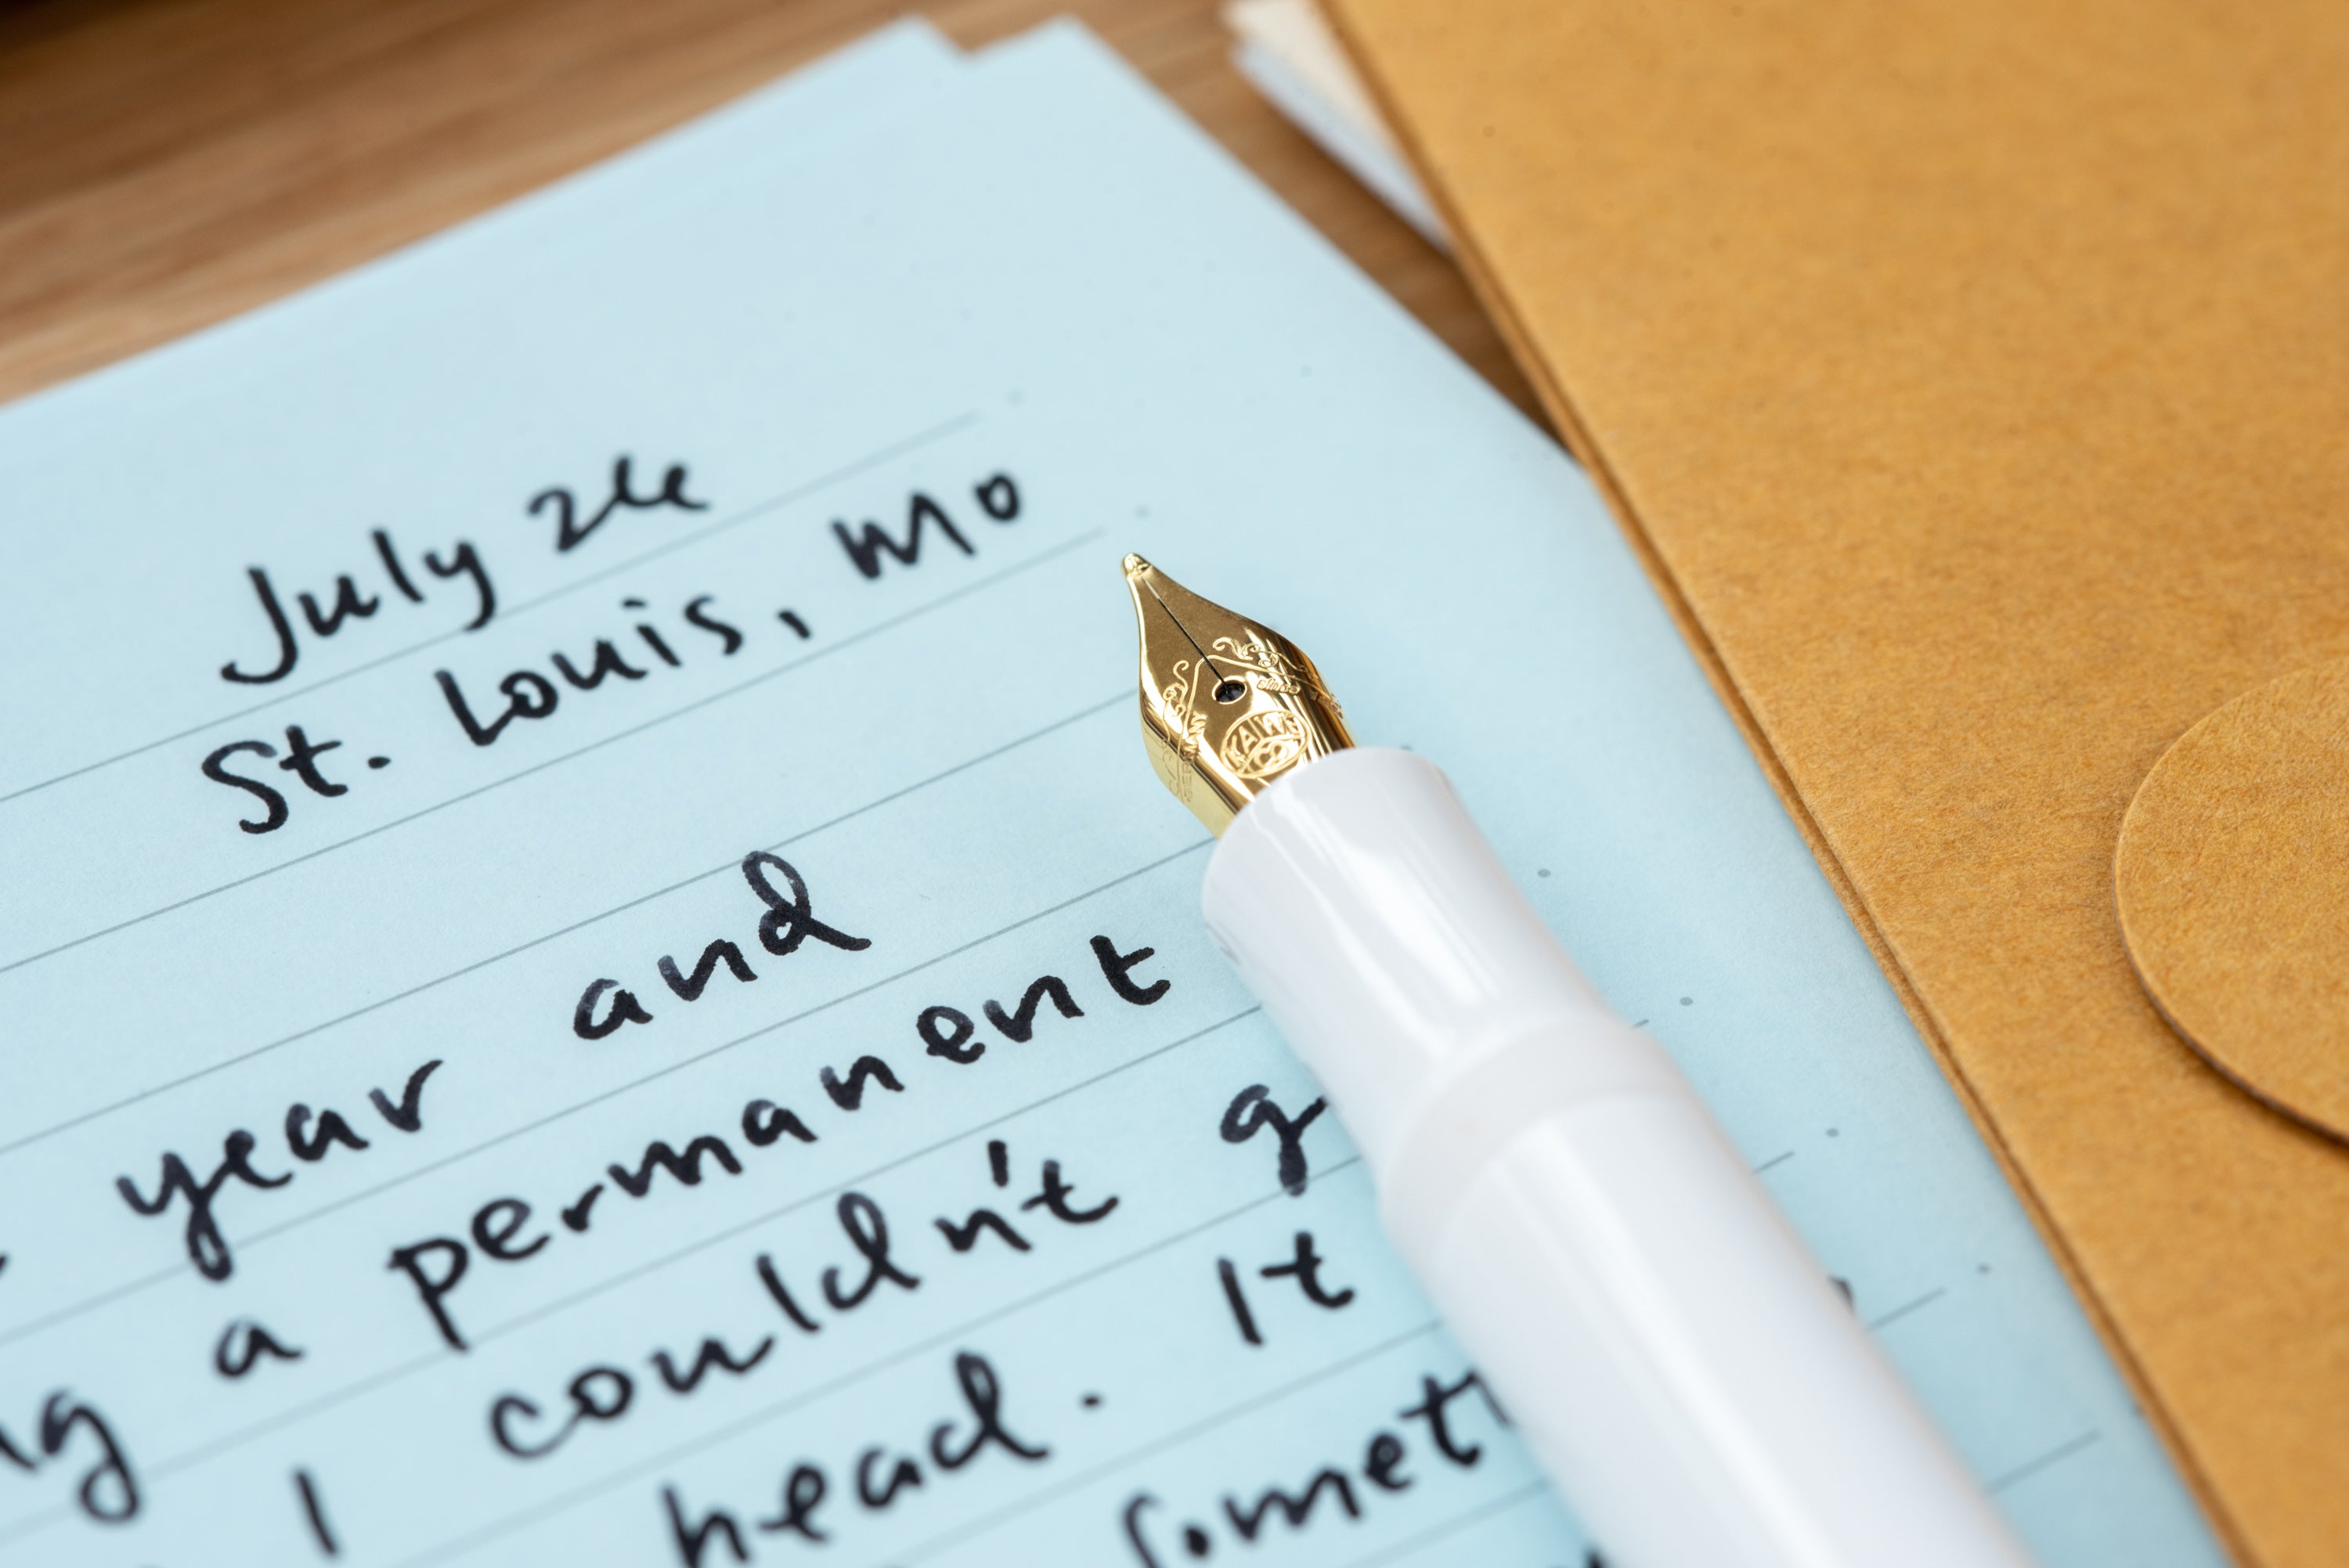 July 26
St. Louis, Mo
year and
a permanent
I couldn't
head. It
KAWE
CO